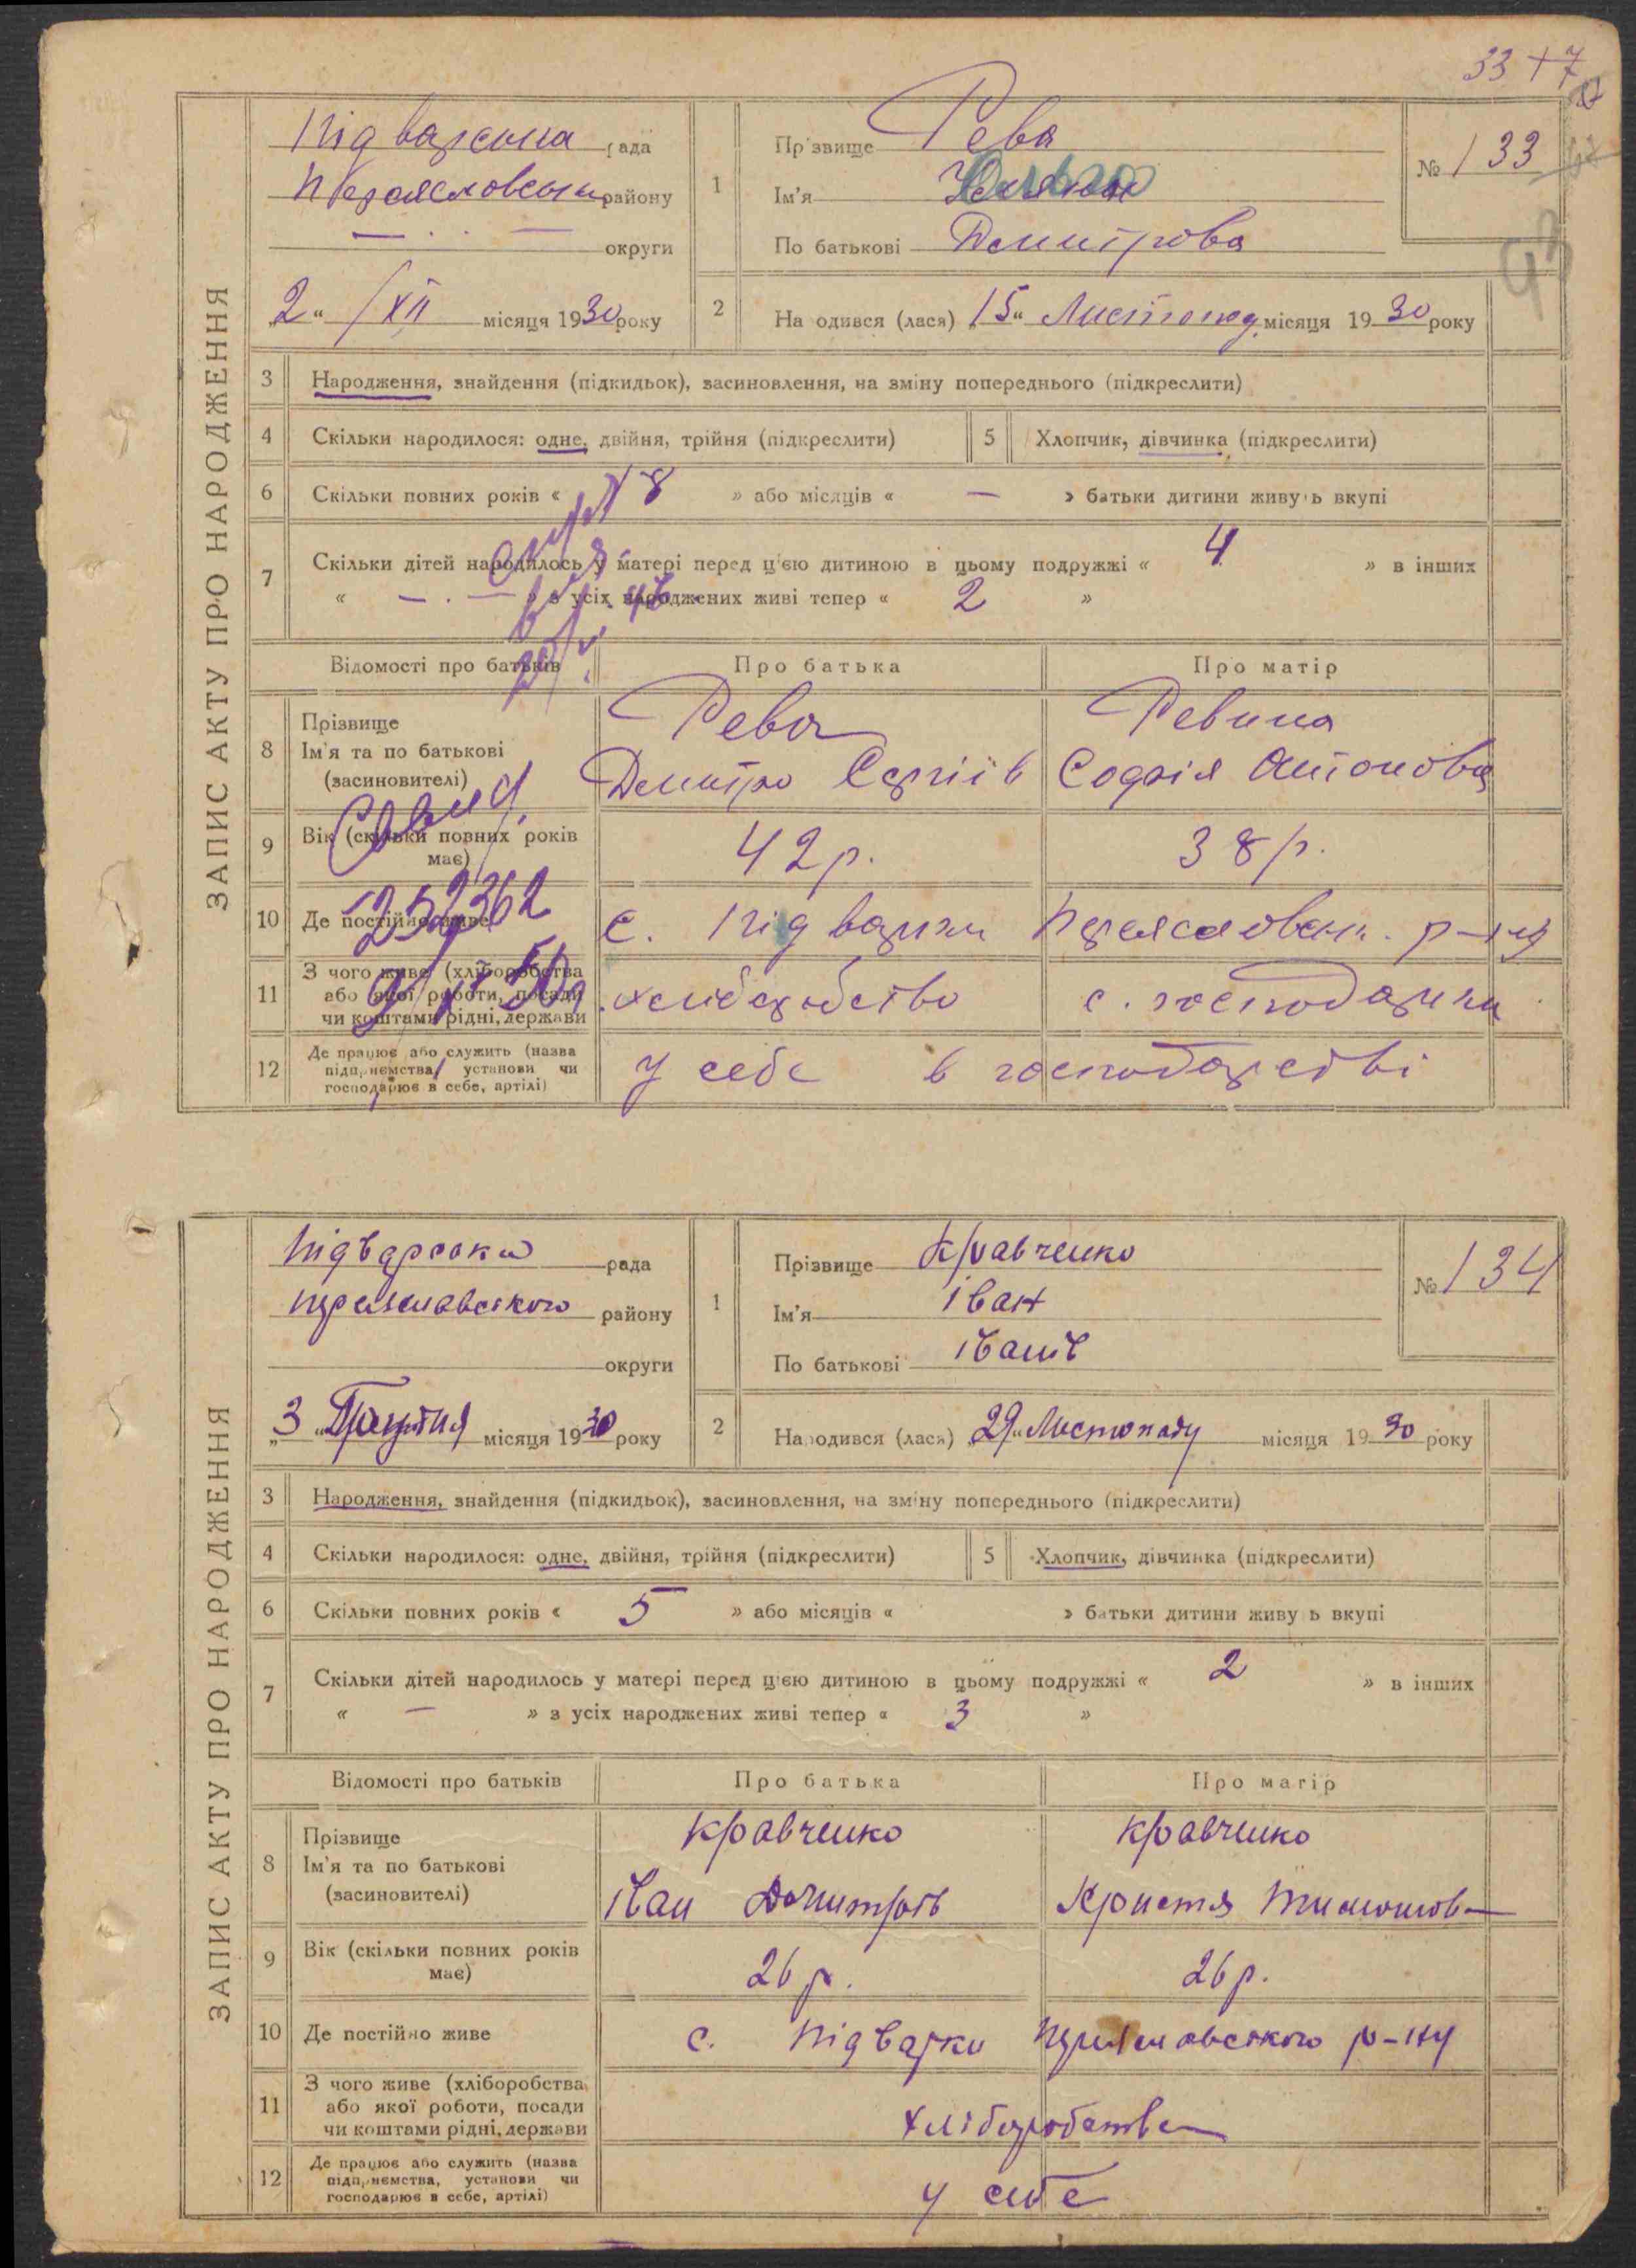 33 + 7
ЗАПИС АКТУ ПРО НАРОДЖЕННЯ
Підварська рада
Переясловськ району
округи
„2“ /XII місяця 1930 року
1
Прізвище Рева
Ім'я
По батькові Дмитрова
№ 133
2
Народився (лася) „15“ Листопад місяця 1930 року
3 Народження, знайдення (підкидьок), засиновлення, на зміну попереднього (підкреслити)
4 Скільки народилося: одне, двійня, трійня (підкреслити)
5 Хлопчик, дівчинка (підкреслити)
6 Скільки повних років « 18 » або місяців « — » батьки дитини живуть вкупі
7 Скільки дітей народилось у матері перед цією дитиною в цьому подружжі « 4 » в інших
« — . — » з усіх народжених живі тепер « 2 »
Відомості про батьків Про батька Про матір
8 Прізвище
Ім'я та по батькові
(засиновителі)
Рева
Дмитро Сергіїв
Ревина
Софія Антонова
9 Вік (скільки повних років
має)
42 р. 38 р.
10 Де постійно живе с. Підварки Переясловськ. р-ну
252362
11 З чого живе (хліборобства
або якої роботи, посади
чи коштами рідні, держави
хліборобство с. господарки
12 Де працює або служить (назва
підприємства, установи чи
господарює в себе, артілі)
у себе в господарстві
ЗАПИС АКТУ ПРО НАРОДЖЕННЯ
Підварська рада
Переяславського району
округи
„3“ Грудня місяця 1930 року
1
Прізвище Кравченко
Ім'я Іван
По батькові Іванів
№ 134
2
Народився (лася) „29“ Листопаду місяця 1930 року
3 Народження, знайдення (підкидьок), засиновлення, на зміну попереднього (підкреслити)
4 Скільки народилося: одне, двійня, трійня (підкреслити)
5 Хлопчик, дівчинка (підкреслити)
6 Скільки повних років « 5 » або місяців « » батьки дитини живуть вкупі
7 Скільки дітей народилось у матері перед цією дитиною в цьому подружжі « 2 » в інших
« — » з усіх народжених живі тепер « 3 »
Відомості про батьків Про батька Про матір
8 Прізвище
Ім'я та по батькові
(засиновителі)
Кравченко
Іван Дмитрів
Кравченко
Христя Тимошов
9 Вік (скільки повних років
має)
26 р. 26 р.
10 Де постійно живе с. Підварки Переяславського р-ну
11 З чого живе (хліборобства
або якої роботи, посади
чи коштами рідні, держави
хліборобство
12 Де працює або служить (назва
підприємства, установи чи
господарює в себе, артілі)
у себе